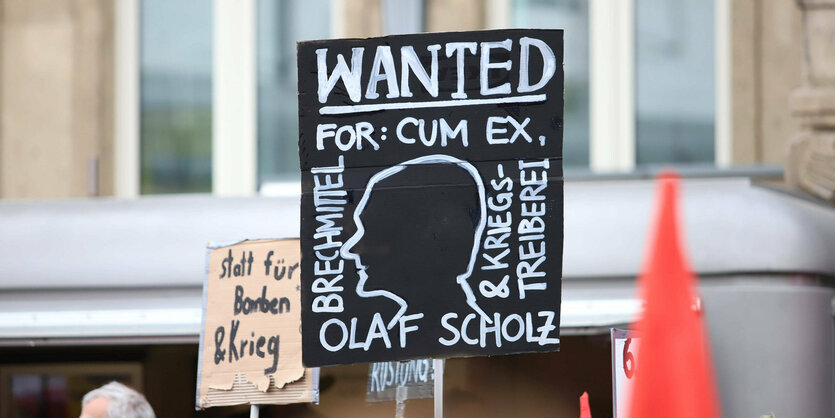 WANTED
FOR: CUM EX,
BRECHMITTEL
& KRIEGS-
TREIBEREI
OLAF SCHOLZ
statt für
Bomben
& Krieg
RÜSTUNG
6